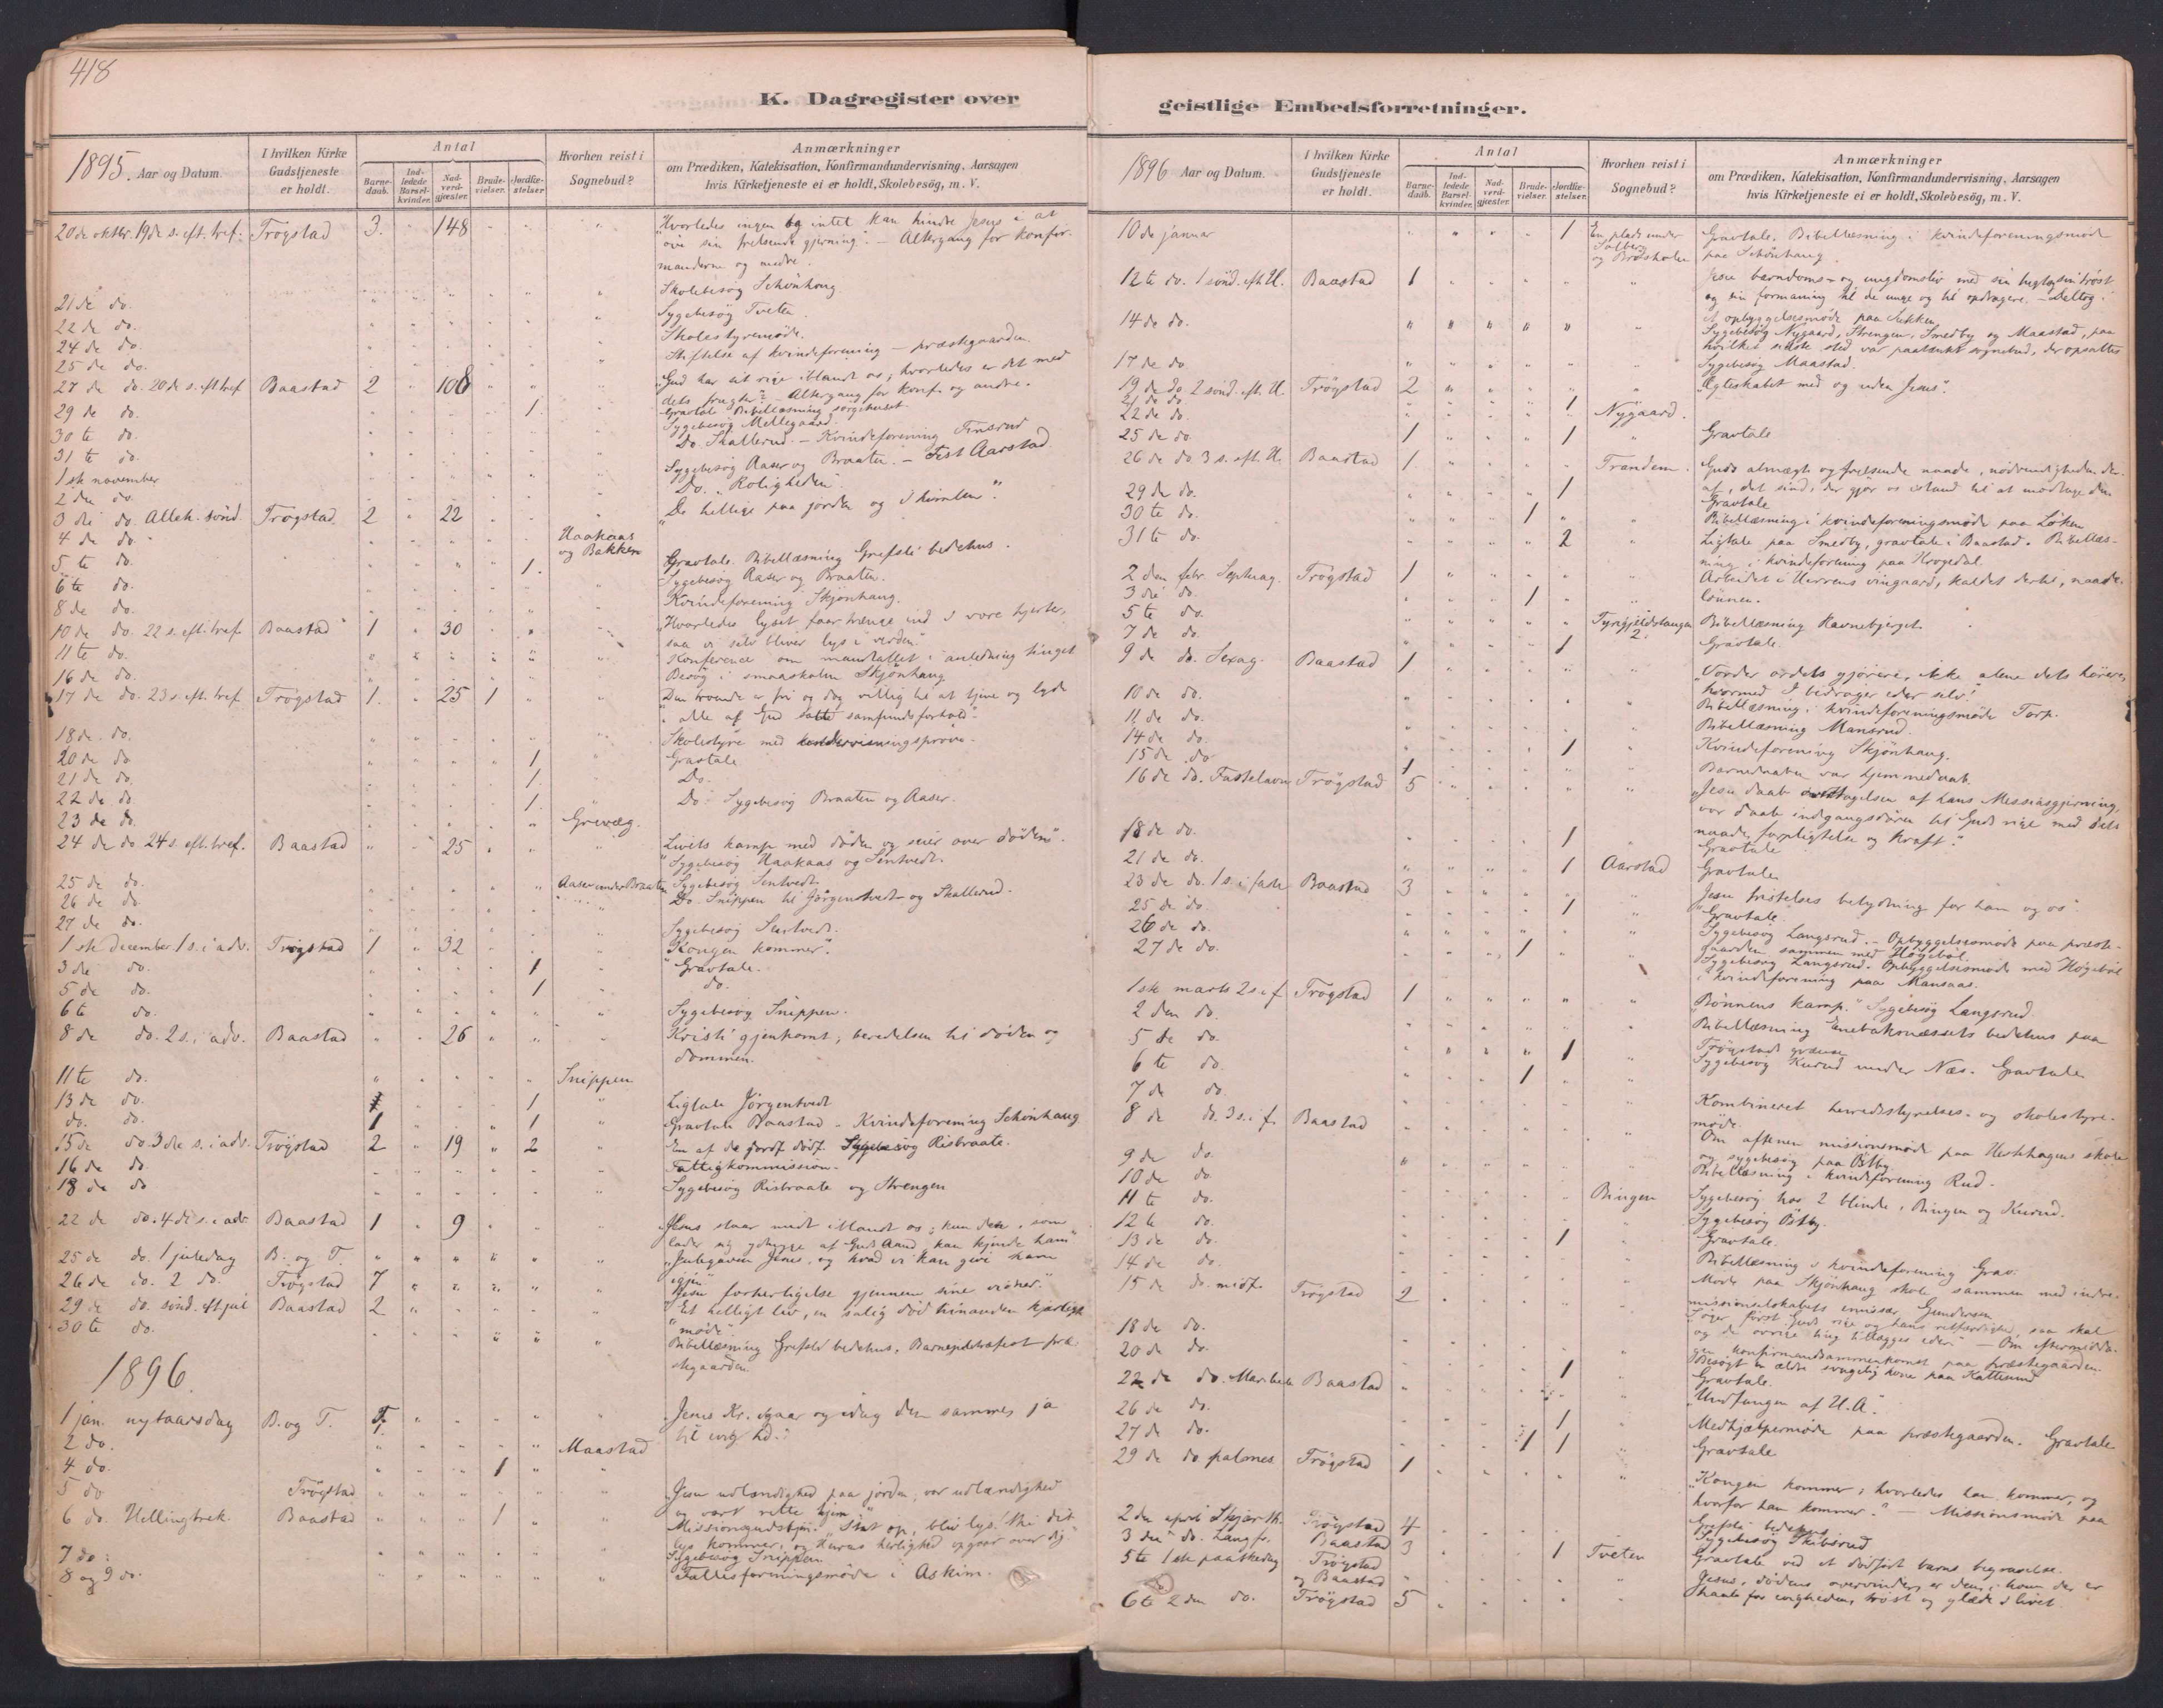 418
K. Dagregister over geistlige Embedsforretninger.
1895. Aar og Datum.
I hvilken Kirke Gudstjeneste er holdt.
Antal
Barne-daab.
Ind-ledede Barsel-kvinder.
Nad-verd-gjæster.
Brude-vielser.
Jordfæ-stelser
Hvorhen reist i Sognebud?
Anmærkninger
om Prædiken, Katekisation, Konfirmandundervisning, Aarsagen
hvis Kirketjeneste ei er holdt, Skolebesög, m. V.
20de oktbr. 19de s. eft. tref. Trøgstad 3. 148 "Hvorledes ingen og intet kan hindre Jesus i at
øve sin frelsende gjerning". – Altergang for konfir-
manderne og andre.
21de do. Skolebesøg Schönhaug
22de do. Sygebesøg Tveten.
24de do. Skolestyremøde.
25de do. Stiftelse af kvindeforening – præstegaarden.
27de do. 20de s. eft. tref Baastad 2 108 "Gud har sit rige iblandt os; hvorledes er det med
dets frugter?" – Altergang for konf. og andre.
29de do. 1. Gravtale Bibellæsning sørgehuset
30te do. Sygebesøg Mellegaard.
31te do. Do. Skallerud. – Kvindeforening Finsrud
1ste november Sygebesøg Aaser og Braaten. – Fest Aarstad
2den do. Do. "Roligheden.
3die do. Alleh. sönd. Trøgstad 2 22 "De hellige paa jorden og i himlen".
4de do. Haakaas og Bakken
5te do. 1. Gravtale. Bibellæsning Grefsli bedehus.
6te do. Sygebesøg Aaser og Braaten.
8de do. Kvindeforening Skjønhaug.
10de do. 22 s. eft. tref. Baastad 1 30 "Hvorledes lyset faar trænge ind i vore hjerter,
saa vi selv bliver lys i verden"
11te do. Konference om mandtallet i anledning tinget
16de do. Besøg i smaaskolen Skjønhaug
17de do. 23 s. eft. tref Trøgstad 1. 25 1 Den troende er fri og dog villig til at tjene og lyde
i alle af Gud satte samfundsforhold".
18de do. Skolestyre med undervisningsprøve.
20de do. 1. Gravtale
21de do. 1. Do.
22de do. 1. Do. Sygebesøg Braaten og Aaser.
23de do. Grevæg.
24de do 24 s. eft. tref. Baastad 25 Livets kamp med døden og seier over døden".
Sygebesøg Haakaas og Sentvedt.
25de do. Aaser under Braaten Sygebesøg Sentvedt.
26de do. Do. Snippen til Jörgentvedt og Skallerud.
27de do. Sygebesøg Sentvedt.
1ste december 1 s. i adv. Trøgstad 1 32 "Kongen kommer".
3die do. 1 Gravtale.
5de do. 1 do.
6te do. Sygebesøg Snippen.
8de do. 2 s. i adv. Baastad 26 Kristi gjenkomst; beredelsen til døden og
dommen.
11te do. Snippen
13de do. 1 Ligtale Jörgentvedt
do. do. 1 1 Gravtale Baastad – Kvindeforening Schönhaug
15de do. 3die s. i adv. Trøgstad 2 19 2 En af de jordf. dödf. Sygebesøg Risbraate.
16de do. Fattigkommission.
18de do Sygebesøg Risbraate og Strengen
22de do. 4de s. i adv. Baastad 1 9 "Jesus staar midt iblandt os; kun den, som
lader sig ydmyge af Guds Aand, kan kjende ham"
25de do. 1 juledag B. og T. "Julegaven Jesus, og hvad vi kan give ham
igjen"
26de do. 2 do. Trøgstad 7 Jesu forherligelse gjennem sine vidner."
29de do. sönd. eft jul Baastad 2 "Et helligt liv, en salig död hinanden kjærligt
møde".
30te do. Bibellæsning Grefsli bedehus. Barnejuletræfest præ-
stegaarden.
1896.
1 jan. nytaarsdag B. og T. Jesus Kr. igaar og idag den samme, ja
til evig tid."
2 do. Maastad
4 do. 1
5 do Trøgstad "Jesu udlændighed paa jorden, vor udlændighed
og vort rette hjem"
6 do. Hellingtrek. Baastad 1 Missionsgudstjn. "Staa op, bliv lys! thi dit
lys kommer, og Herrens herlighed opgaar over dig
7 do. Sygebesøg Snippen
8 og 9 do. Fællesforeningsmøde i Askim.
1896 Aar og Datum.
I hvilken Kirke Gudstjeneste er holdt.
Antal
Barne-daab.
Ind-ledede Barsel-kvinder.
Nad-verd-gjæster.
Brude-vielser.
Jordfæ-stelser.
Hvorhen reist i Sognebud?
Anmærkninger
om Prædiken, Katekisation, Konfirmandundervisning, Aarsagen
hvis Kirketjeneste ei er holdt, Skolebesög, m. V.
10de januar 1 En plads under Solberg og Brødsholen Gravtale. Bibellæsning i kvindeforeningsmøde
paa Schönhaug.
12te do. 1 sönd. eft. H. Baastad 1 Jesu barndoms- og ungdomsliv med sin trøst
og sin formaning til de unge og til opdragere. – Deltog i
et opbyggelsesmøde paa
14de do. Sygebesøg Nygaard, Strengen, Smedby og Maastad, paa
hvilket sidste sted var paatænkt sognebud, der opsattes
17de do Sygebesøg Maastad.
19de do. 2 sönd. eft. H. Trøgstad 2 "Ægteskabet med og uden Jesus".
21 de do. 1
22de do. Nygaard.
25de do. 1 1 Gravtale
26de do. 3 s. eft. H. Baastad 1 Trandem. Guds almagt og frelsende naade, nødvendigheden der-
af, det sind, der gjør os istand til at modtage den
29de do. 1 Gravtale
30te do. 1 Bibellæsning i kvindeforeningsmøde paa Løken
31te do. 2 Ligtale paa Smedby, gravtale i Baastad. Bibellæs-
ning i kvindeforening paa
2den febr. Septuag. Trøgstad 1 Arbeidet i Herrens vingaard, kaldet dertil, naade-
lønnen.
3die do. 1
5te do. Tyrigjeldstangen 2. Bibellæsning Ravnebjerget.
7de do. 1 Gravtale.
9de do. Sexag. Baastad 1 "Vorder ordets gjørere, ikke alene dets hørere,
hvormed I bedrager eder selv!"
10de do. Bibellæsning i kvindeforeningsmøde Torp.
11de do. Bibellæsning Mansrud.
14de do. 1 Kvindeforening Skjønhaug.
15de do 1 Barnedaaben var hjemmedaab.
16de do. Fastelavn Trøgstad 5 "Jesu daab af hans Messiasgjerning,
vor daab indgangsdøren til Guds rige med dets
naade, forpligtelse og kraft".
18de do. 1 Gravtale
21de do. 1 Aarstad Gravtale
23de do. 1 s. i faste Baastad 3 Jesu fristelses betydning for ham og os".
25de do. 1 Gravtale.
26de do. Sygebesøg Langsrud. – Opbyggelsesmøde paa præste-
gaarden sammen med Høgebøl.
27de do. 1 Sygebesøg Langsrud. Opbyggelsesmøde med Høgebøl
i kvindeforening paa Mansaas.
1ste marts 2 s. i f. Trøgstad 1 "Bønnens kamp." Sygebesøg Langsrud.
2den do. Bibellæsning Enebaknæssets bedehus paa
Trøgstads grænse
5de do. 1 Sygebesøg Kurud under Næs. Gravtale
6te do. 1
7de do Kombineret herredsstyrelses- og skolestyre-
møde.
8de do. 3 s. i f. Baastad Om aftenen missionsmøde paa Hesthagens skole
og sygebesøg paa Østby
9de do. Bibellæsning i kvindeforening Rud.
10de do
11te do. Bingen Sygebesøg hos 2 blinde, Bingen og Kurud.
12te do. Sygebesøg Østby.
13de do. 1 Gravtale.
14de do. Bibellæsning i kvindeforening Grav.
15de do. midf. Trøgstad 2 Møde paa Skjønhaug skole sammen med indre-
missionselskabets emissær Gundersen
Søger først Guds rige og hans retfærdighed, saa skal
og de øvrige ting tillægges eder." – Om eftermidda-
gen konfirmandsammenkomst paa præstegaarden.
18de do. Besøgt en ældre svagelig kone paa Kattesund
20de do. 1 Gravtale.
22de do. Maribeb. Baastad "Undfangen af H. A."
26de do. 1 Medhjælpermøde paa præstegaarden. Gravtale
27de do. 1 1 Gravtale
29de do palmes. Trøgstad 1 "Kongen kommer; hvorledes han kommer, og
hvorfor han kommer." – Missionsmøde paa
Grefsli bedehus
2den april Skjærth. Trøgstad 4 Sygebesøg Skibsrud
3die do. Langfr. Baastad 3 1 Tveten Gravtale ved et dødfødt barns begravelse.
5te 1ste paaskedag Trøgstad og Baastad Jesus, dødens overvinder, er den, i hvem der er
6te 2den do. Trøgstad 5 haab for evigheden, trøst og glæde i livet